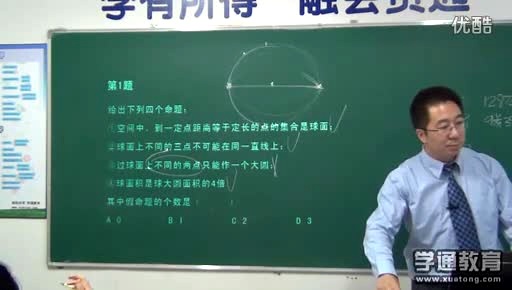 学有所得 融会贯通
优酷
第1题
给出下列四个命题:
①空间中,到一定点距离等于定长的点的集合是球面;
②球面上不同的三点不可能在同一直线上;
③过球面上不同的两点只能作一个大圆;
④球面积是球大圆面积的4倍
其中假命题的个数是( )
A 0 B 1 C 2 D 3
学通教育
www.xuetong.com